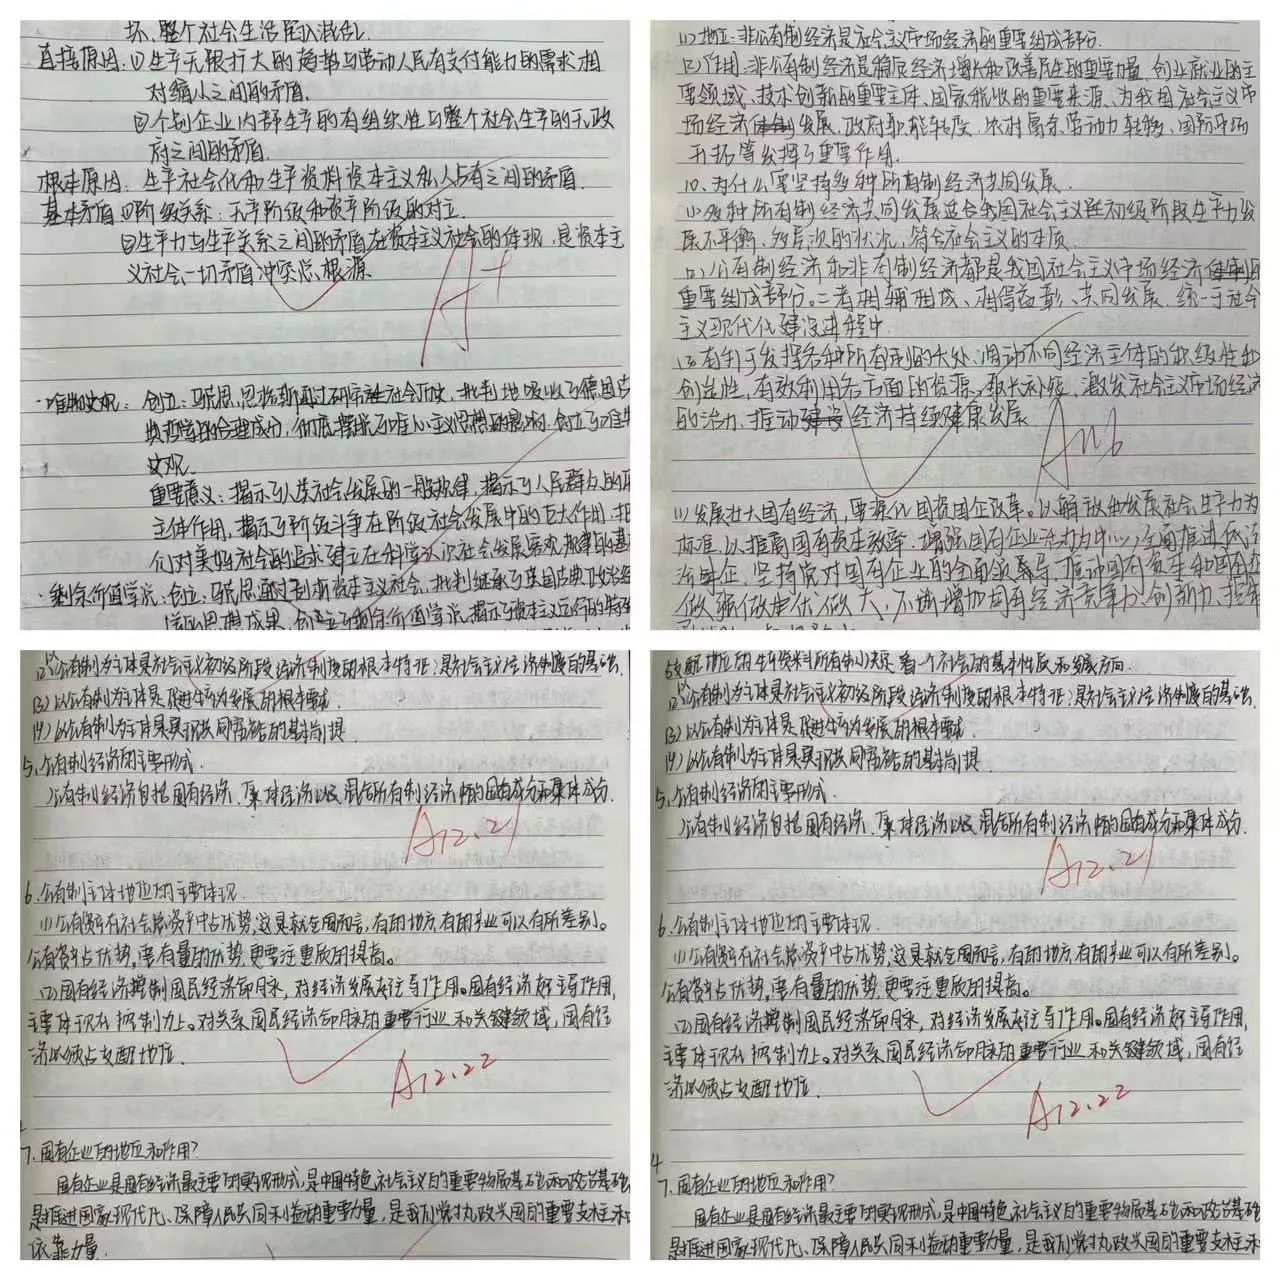 坏、整个社会生活陷入混乱。
直接原因:(1)生产无限扩大的趋势与劳动人民有支付能力的需求相
对缩小之间的矛盾.
(2)个别企业内部生产的有组织性与整个社会生产的无政
府之间的矛盾.
根本原因:生产社会化和生产资料资本主义私人占有之间的矛盾.
基本矛盾 (1)阶级关系:无产阶级和资产阶级的对立.
(2)生产力与生产关系之间的矛盾在资本主义社会的体现,是资本主
义社会一切矛盾冲突总根源
A+
·唯物史观:创立:马克思,恩格斯通过研究社会历史,批判地吸收了德国古
典哲学的合理成分,彻底摆脱了唯心主义思想的影响,创立了唯物
史观.
重要意义:揭示了人类社会发展的一般规律,揭示了人民群众的
主体作用,揭示了阶级斗争在阶级社会发展中的巨大作用,把
们对美好社会的追求建立在科学认识社会发展客观规律的基
·剩余价值学说:创立:马克思通过剖析资本主义社会,批判继承了英国古典政治经
的思想成果,创立了剩余价值学说,揭示了资本主义运行的特殊
(1)地位:非公有制经济是社会主义市场经济的重要组成部分.
(2)作用:非公有制经济是稳定经济增长和改善民生的重要力量,创业就业的主
要领域、技术创新的重要主体、国家税收的重要来源、为我国社会主义市
场经济发展,政府职能转变,农村富余劳动力转移,国际市场
开拓等发挥了重要作用.
10、为什么要坚持多种所有制经济共同发展.
(1)多种所有制经济共同发展适合我国社会主义初级阶段生产力发
展不平衡、多层次的状况,符合社会主义的本质.
(2)公有制经济和非公有制经济都是我国社会主义市场经济的
重要组成部分。二者相辅相成、相得益彰、共同发展,统一于社会
主义现代化建设进程中.
(3)有利于发挥各种所有制的长处、调动不同经济主体的积极性和
创造性,有效利用各方面的资源,取长补短,激发社会主义市场经济
的活力、推动经济持续健康发展
A
(1)发展壮大国有经济,要深化国资国企改革。以解放和发展社会生产力为
标准,以提高国有资本效率、增强国有企业活力为中心;全面推进依法
治企,坚持党对国有企业的全面领导,推动国有资本和国有企
做强做优做大,不断增加国有经济竞争力、创新力,
(2)以公有制为主体是社会主义初级阶段经济制度的根本特征;是社会主义经济制度的基础.
(3)以公有制为主体是促进生产力发展的根本要求
(4)以公有制为主体是实现共同富裕的基本前提
5、公有制经济的主要形式.
公有制经济包括国有经济、集体经济以及混合所有制经济中的国有成分和集体成分.
A12.21
6.公有制主体地位的主要体现
(1)公有资产在社会总资产中占优势,这是就全国而言,有的地方,有的产业可以有所差别。
公有资产占优势,要有量的优势,更要注重质的提高。
(2)国有经济控制国民经济命脉,对经济发展起主导作用。国有经济起主导作用,
主要体现在控制力上。对关系国民经济命脉的重要行业和关键领域,国有经
济必须占支配地位.
A12.22
7.国有企业的地位和作用?
国有企业是国有经济最主要的实现形式,是中国特色社会主义的重要物质基础和政治基础
是推进国家现代化、保障人民共同利益的重要力量,是我们党执政兴国的重要支柱和
依靠力量.
支配地位的生产资料所有制决定着一个社会的基本性质和发展方向.
(2)以公有制为主体是社会主义初级阶段经济制度的根本特征;是社会主义经济制度的基础.
(3)以公有制为主体是促进生产力发展的根本要求
(4)以公有制为主体是实现共同富裕的基本前提
5、公有制经济的主要形式.
公有制经济包括国有经济、集体经济以及混合所有制经济中的国有成分和集体成分.
A12.21
6.公有制主体地位的主要体现
(1)公有资产在社会总资产中占优势,这是就全国而言,有的地方,有的产业可以有所差别。
公有资产占优势,要有量的优势,更要注重质的提高。
(2)国有经济控制国民经济命脉,对经济发展起主导作用。国有经济起主导作用,
主要体现在控制力上。对关系国民经济命脉的重要行业和关键领域,国有经
济必须占支配地位.
A12.22
7.国有企业的地位和作用?
国有企业是国有经济最主要的实现形式,是中国特色社会主义的重要物质基础和政治基础
是推进国家现代化、保障人民共同利益的重要力量,是我们党执政兴国的重要支柱和